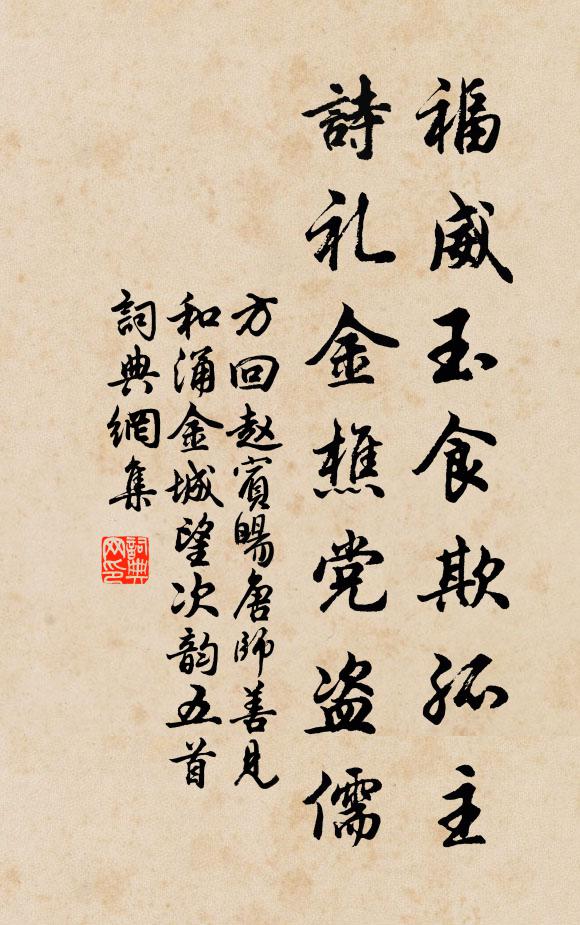 福威玉食欺孤主
詩礼金樵党盗儒
方回赵賓暘唐師善見
和涌金城望次韵五首
詞典網集
詞典网印